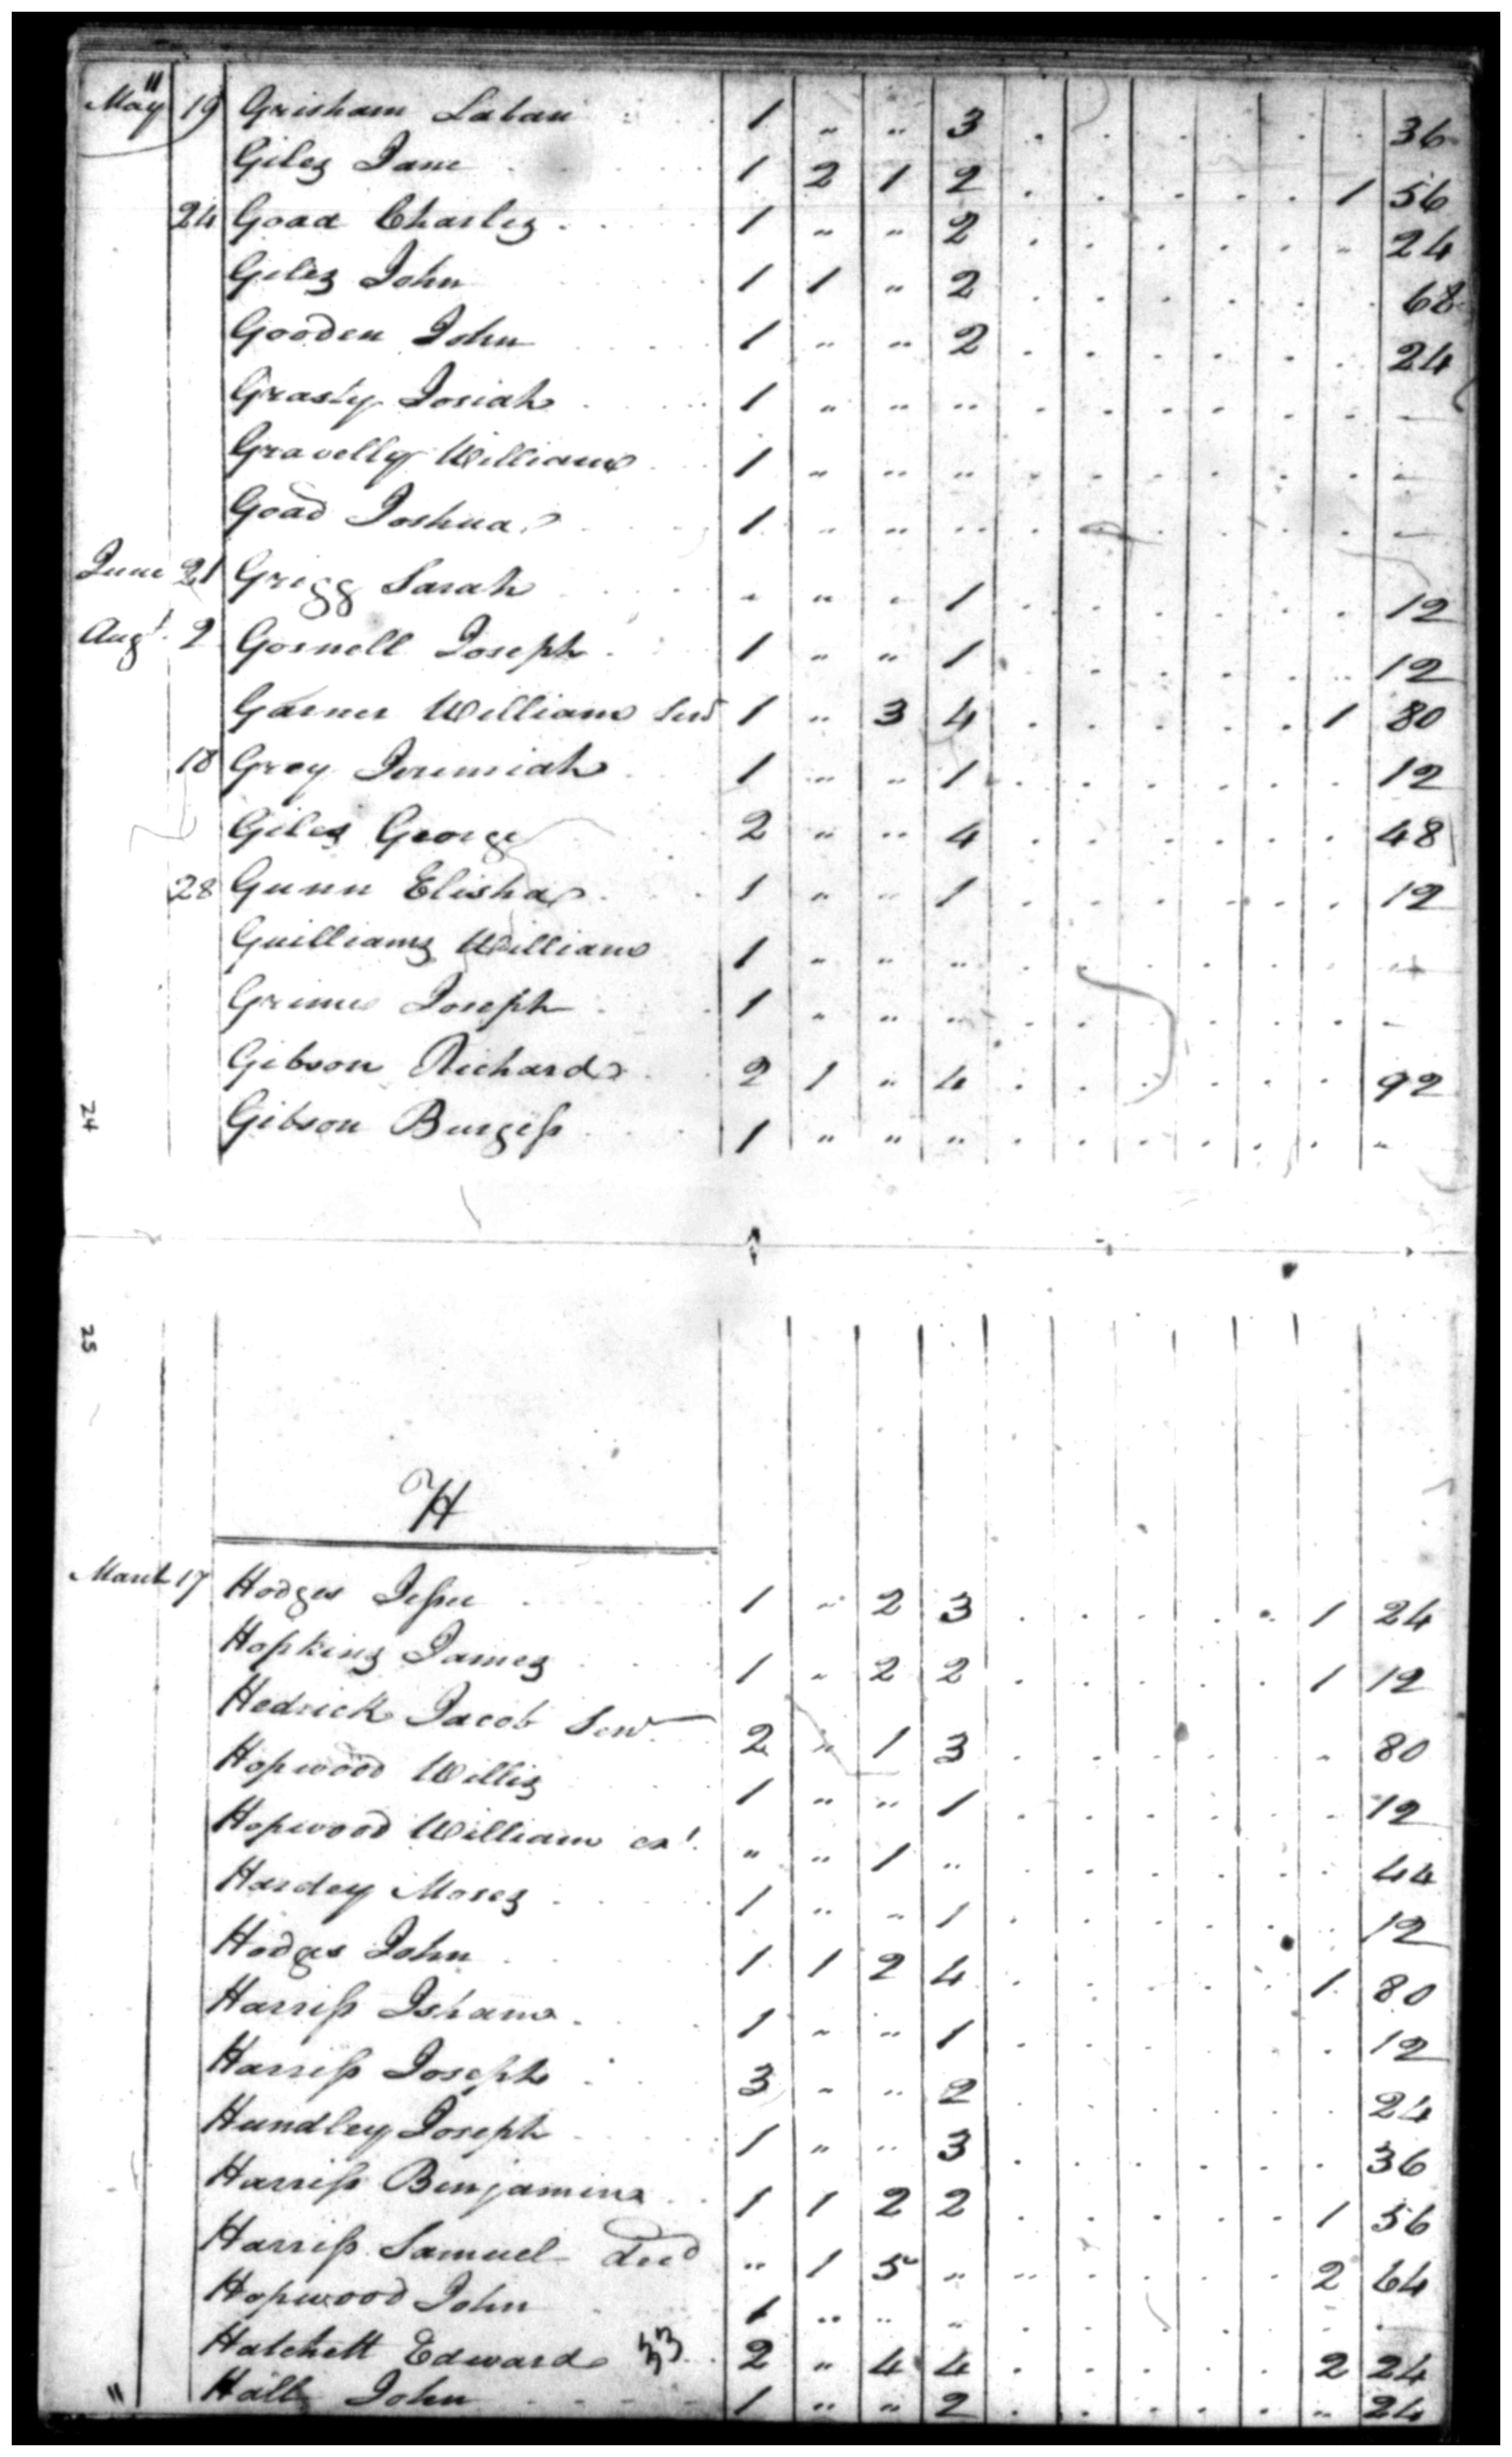 "
May 19 Grisham Laban 1 " " 3 . . . . . . 36
Giles Jane 1 2 1 2 . . . . . 1 56
24 Goad Charles 1 " " 2 . . . . . " 24
Giles John 1 1 " 2 . . . . . . 68
Gooden John 1 " " 2 . . . . . . 24
Grasty Josiah 1 " " " . . . . . . —
Gravelly William 1 " " " . . . . . . —
Goad Joshua 1 " " " . . . . . . —
June 21 Grigg Sarah " " " 1 . . . . . . 12
Augt. 2 Gosnell Joseph 1 " " 1 . . . . . " 12
Garner William Senr 1 " 3 4 . . . . . 1 80
18 Grey Jeremiah 1 " " 1 . . . . . . 12
Giles George 2 " " 4 . . . . . . 48
28 Gunn Elisha 1 " " 1 . . . . . . 12
Guilliams William 1 " " " . . . . . . "
Grimes Joseph 1 " " " . . . . . . "
Gibson Richard 2 1 " 4 . . . . . . 92
24 Gibson Burgess 1 " " " . . . . . . "
25
H
March 17 Hodges Jesse 1 " 2 3 . . . . . 1 24
Hopkins James 1 " 2 2 . . . . . 1 12
Hedrick Jacob Senr 2 " 1 3 . . . . . " 80
Hopwood Willis 1 " " 1 . . . . . . 12
Hopwood William " " 1 " . . . . . . 44
Hardey Moses 1 " " 1 . . . . . " 12
Hodges John 1 1 2 4 . . . . . 1 80
Harriss Isham 1 " " 1 . . . . . . 12
Harriss Joseph 3 " " 2 . . . . . . 24
Hundley Joseph 1 " " 3 . . . . . . 36
Harriss Benjamin 1 1 2 2 . . . . . 1 56
Harriss Samuel decd " 1 5 " " . . . . 2 64
Hopwood John 1 " " " . . . . . . .
Hatchett Edward 2 " 4 4 . . . . . 2 24
" Hall John 1 " " 2 . . . . . " 24